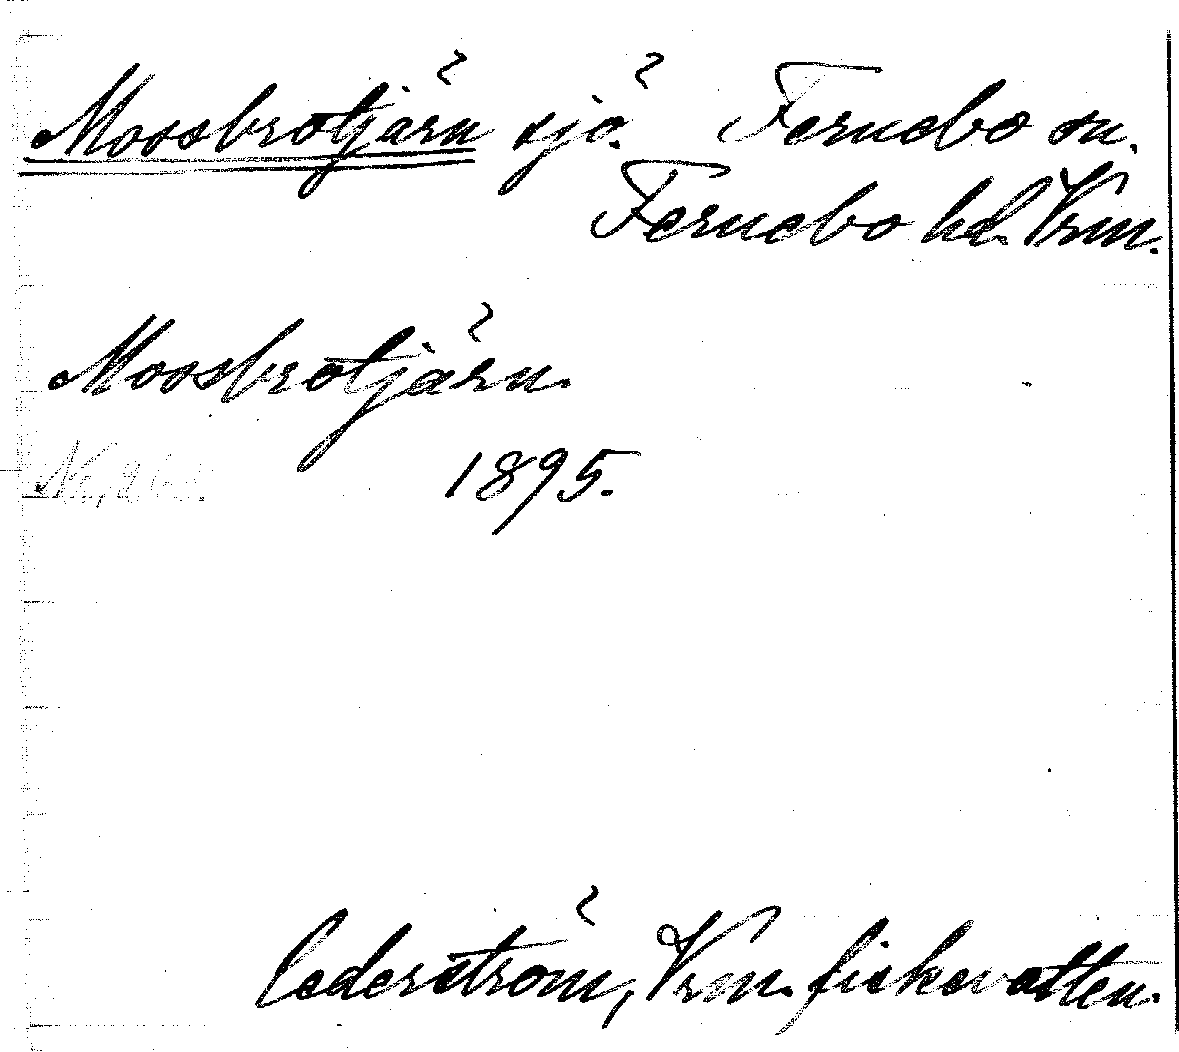 Mossbrotjärn sjö. Fernebo sn.
Fernebo hd. Vrm.
Mossbrotjärn.
1895.
Cederström, Vrm. fiskevatten.